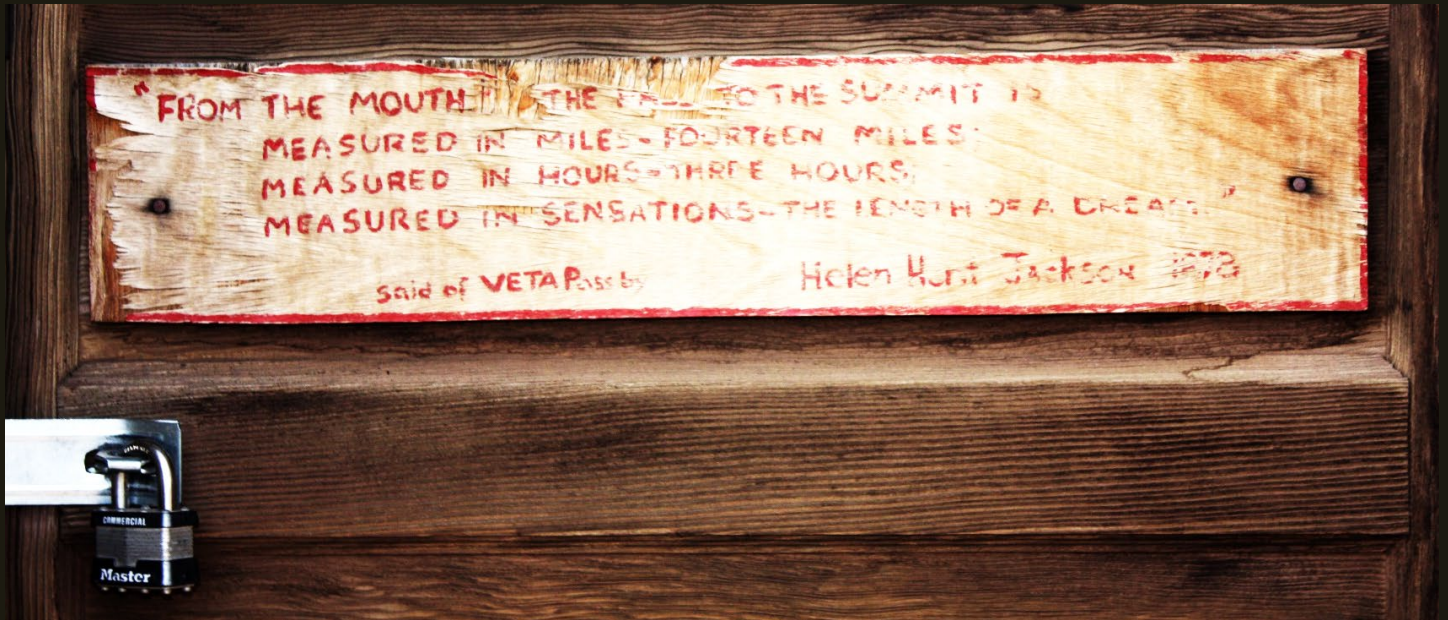 "FROM THE MOUTH THE TO THE SUMMIT IS
MEASURED IN MILES-FOURTEEN MILES;
MEASURED IN HOURS-THREE HOURS;
MEASURED IN SENSATIONS-THE LENGTH OF A DREAM."
said of VETA Pass by Helen Hunt Jackson 1878
COMMERCIAL
Master